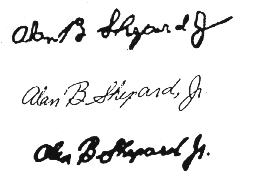 Alan B Shepard J
Alan B. Shepard, Jr.
Alan B Shepard Jr.